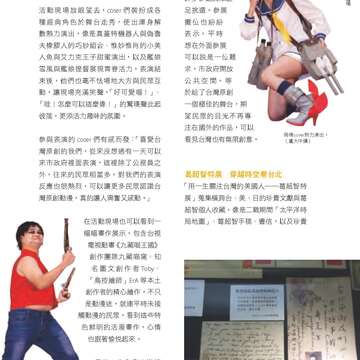 活動現場放眼望去，coser們裝扮成各
種經典角色於舞台走秀，使出渾身解
數熱力演出，像是真善特機器人與偽魯
夫橡膠人的巧妙組合、惟妙惟肖的小美
人魚與艾力克王子甜蜜演出，以及艦娘
雪風與艦娘提督展現青春活力。表演結
束後，他們也毫不怯場地大方與民眾互
動，讓現場充滿笑聲。「好可愛喔！」、
「哇！怎麼可以這麼像！」的驚嘆聲此起
彼落，更添活力趣味的氛圍。
參與表演的coser們有感而發：「喜愛台
灣原創的我們，從來沒想過有一天可以
來市政府裡面表演。這裡除了公務員之
外，往來的民眾相當多，對我們的表演
反應也很熱烈，可以讓更多民眾認識台
灣原創動漫，真的讓人興奮又感動。」
在活動現場也可以看到一
幅幅畫作展示，包含台視
電視動畫《九藏喵王國》
創作團隊九藏喵窩、知
名圖文創作者Toby、
「鳥控繪師」ErA等本土
創作者的精心繪作，不只
是動漫迷，就連平時未接
觸動漫的民眾，看到這些特
色鮮明的活潑畫作，心情
也跟著愉悅起來。
足民眾，參展
攤位也紛紛
表示，平時
想在外面參展
可以說是一位難
求，市政府開放
公共空間，等
於給了台灣原創
一個極佳的舞台，期
望民眾的目光不再專
注在國外的作品，可以
看見台灣也有無限創意。
現場coser熱力演出。
（盧大中攝）
葛超智特展　穿越時空看台北
「用一生關注台灣的美國人──葛超智特
展」蒐集橫跨台、美、日的珍貴文獻與葛
超智個人收藏，像是二戰期間「太平洋時
局地圖」、葛超智手稿、書信，以及珍貴